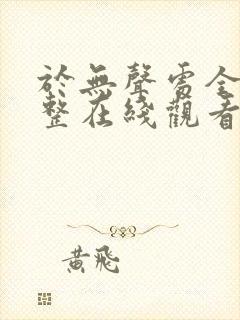 於無聲處全
整在綫觀看
黃飛